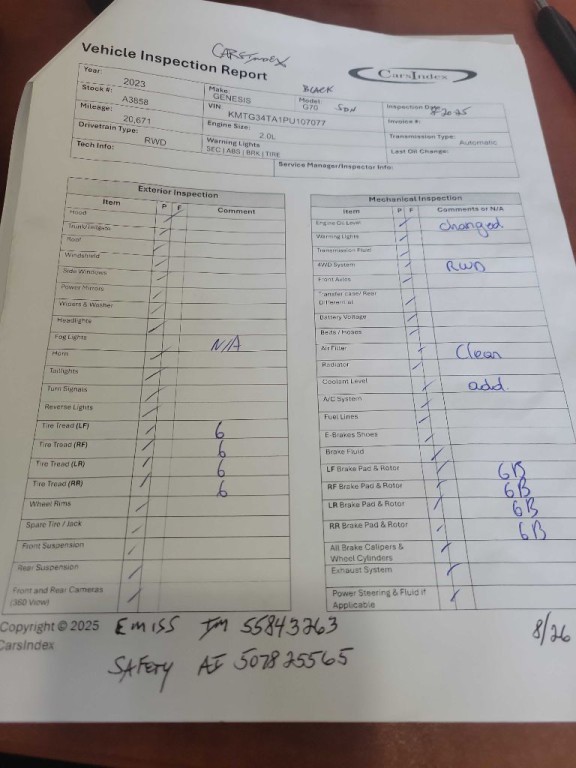 CARSIndex
Vehicle Inspection Report
CarsIndex
Year: 2023
Make: GENESIS
BLACK
Model: G70 SDN
Inspection Date: 8-20-25
Stock #: A3858
VIN KMTG34TA1PU107077
Invoice #:
Mileage: 20,671
Engine Size: 2.0L
Transmission Type: Automatic
Drivetrain Type: RWD
Warning Lights SEC | ABS | BRK | TIRE
Last Oil Change:
Tech Info:
Service Manager/Inspector Info:
Exterior Inspection
Item P F Comment
Hood
Trunk/Tailgate
Roof
Windshield
Side Windows
Power Mirrors
Wipers & Washer
Headlights
Fog Lights N/A
Horn
Taillights
Turn Signals
Reverse Lights
Tire Tread (LF) 6
Tire Tread (RF) 6
Tire Tread (LR) 6
Tire Tread (RR) 6
Wheel Rims
Spare Tire / Jack
Front Suspension
Rear Suspension
Front and Rear Cameras
(360 View)
Mechanical Inspection
Item P F Comments or N/A
Engine Oil Level changed
Warning Lights
Transmission Fluid
4WD System RWD
Front Axles
Transfer case/ Rear
Differential
Battery Voltage
Belts / Hoses
Air Filter Clean
Radiator
Coolant Level add
A/C System
Fuel Lines
E-Brakes Shoes
Brake Fluid
LF Brake Pad & Rotor 6B
RF Brake Pad & Rotor 6B
LR Brake Pad & Rotor 6B
RR Brake Pad & Rotor 6B
All Brake Calipers &
Wheel Cylinders
Exhaust System
Power Steering & Fluid if
Applicable
Copyright © 2025
CarsIndex
EMISS IM 55843263
SAFety AI 507825565
8/26